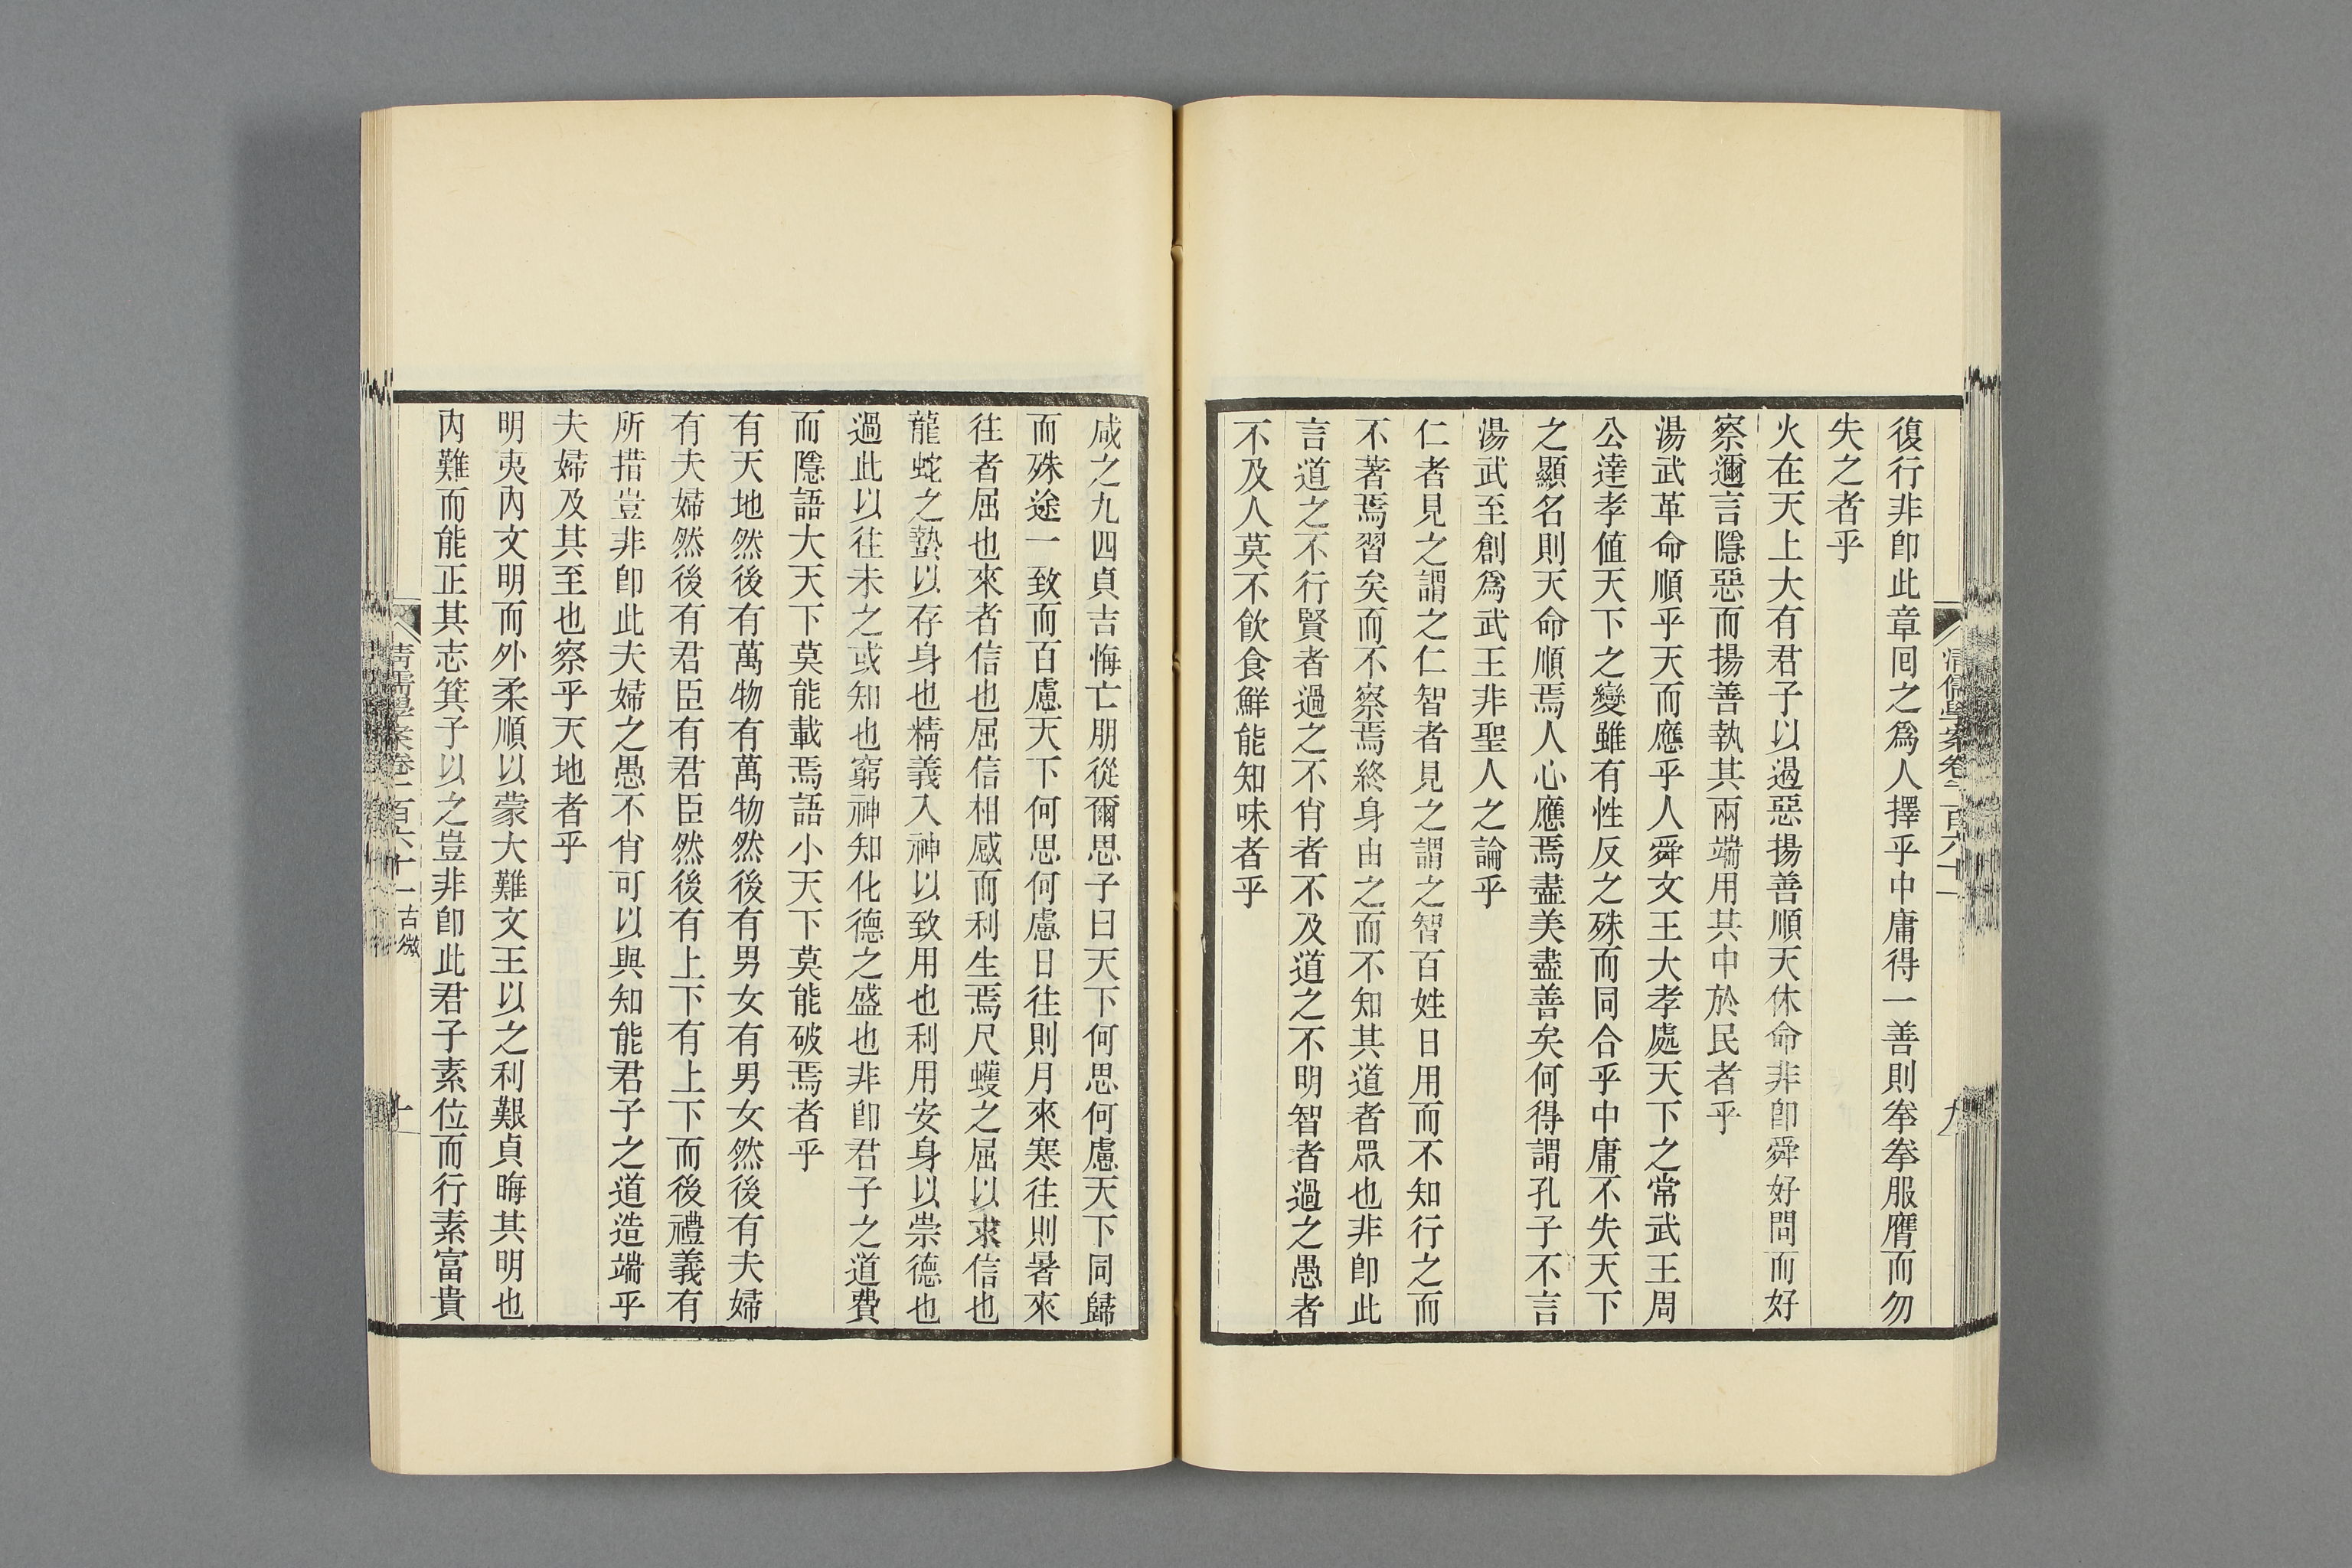 復行非卽此章囘之爲人擇乎中庸得一善則拳拳服膺而勿
失之者乎
火在天上大有君子以遏惡揚善順天休命非卽舜好問而好
察邇言隱惡而揚善執其兩端用其中於民者乎
湯武革命順乎天而應乎人舜文王大孝處天下之常武王周
公達孝値天下之變雖有性反之殊而同合乎中庸不失天下
之顯名則天命順焉人心應焉盡美盡善矣何得謂孔子不言
湯武至創爲武王非聖人之論乎
仁者見之謂之仁智者見之謂之智百姓日用而不知行之而
不著焉習矣而不察焉終身由之而不知其道者眾也非卽此
言道之不行賢者過之不肖者不及道之不明智者過之愚者
不及人莫不飮食鮮能知味者乎
清儒學案卷一百六十一
九
咸之九四貞吉悔亡朋從爾思子曰天下何思何慮天下同歸
而殊途一致而百慮天下何思何慮日往則月來寒往則暑來
往者屈也來者信也屈信相感而利生焉尺蠖之屈以求信也
龍蛇之蟄以存身也精義入神以致用也利用安身以崇德也
過此以往未之或知也窮神知化德之盛也非卽君子之道費
而隱語大天下莫能載焉語小天下莫能破焉者乎
有天地然後有萬物有萬物然後有男女有男女然後有夫婦
有夫婦然後有君臣有君臣然後有上下有上下而後禮義有
所措豈非卽此夫婦之愚不肖可以與知能君子之道造端乎
夫婦及其至也察乎天地者乎
明夷內文明而外柔順以蒙大難文王以之利艱貞晦其明也
內難而能正其志箕子以之豈非卽此君子素位而行素富貴
清儒學案卷一百六十一 古微